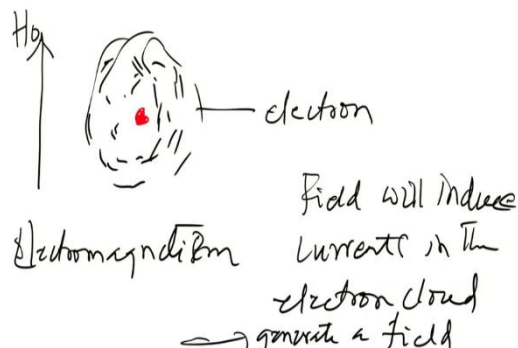 Ho
electron
Electromagnetism
Field will induce
currents in the
electron cloud
generate a field